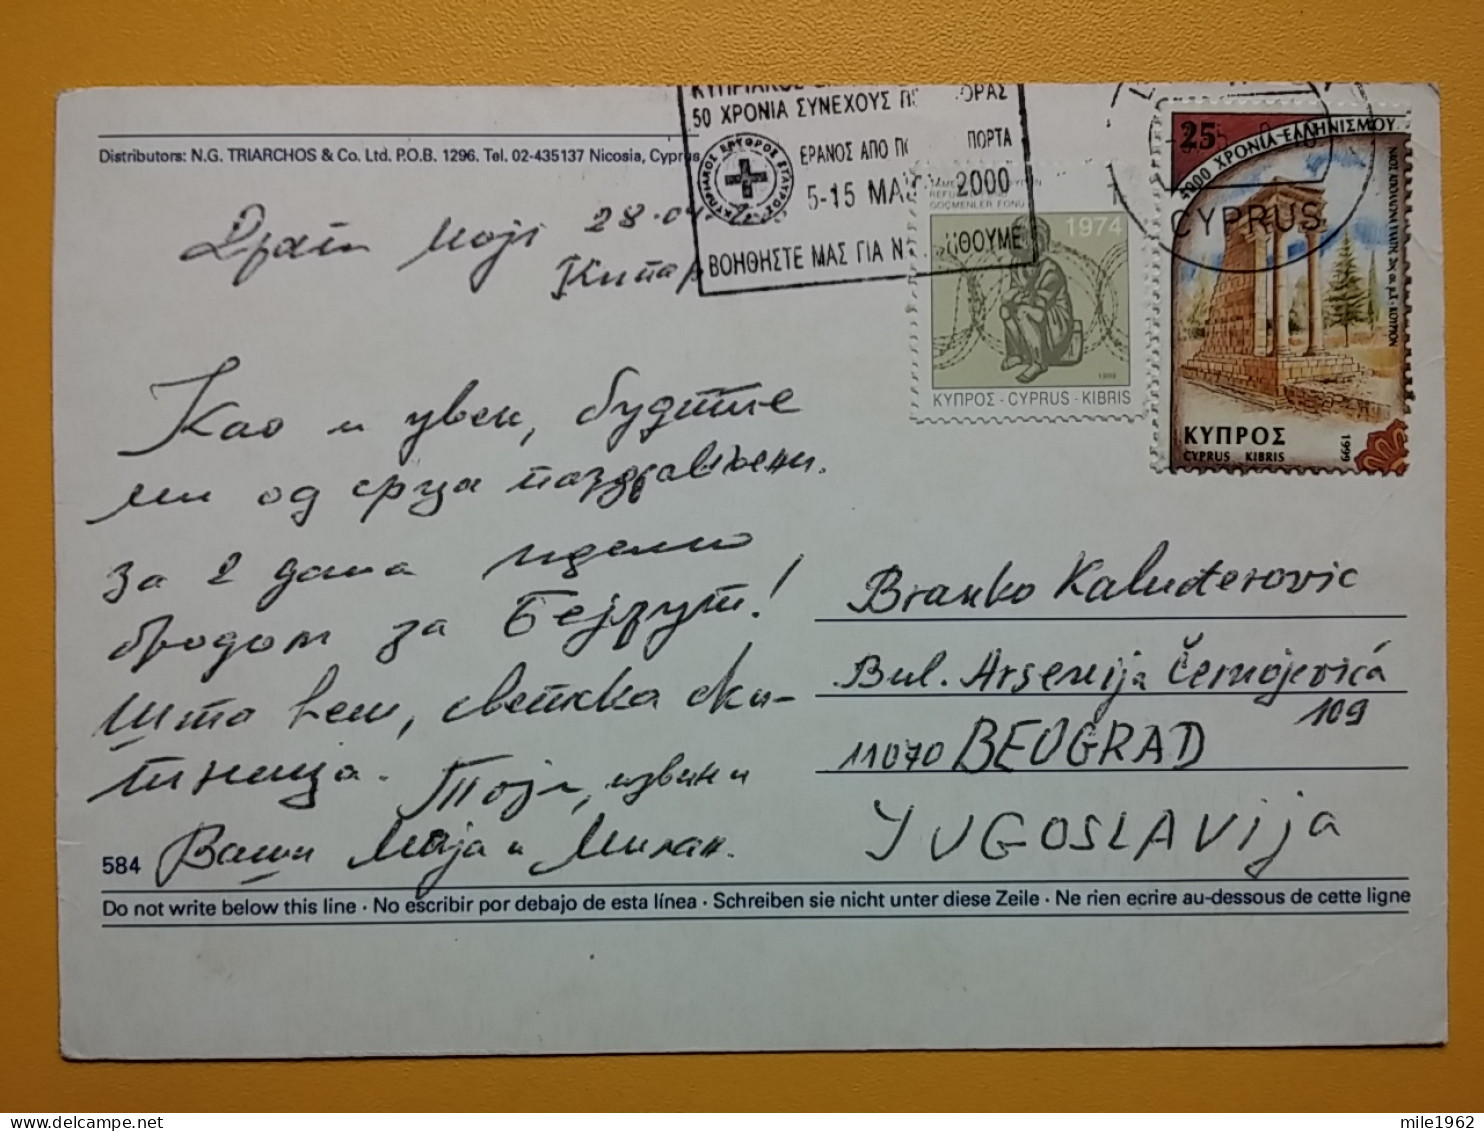 50 ΧΡΟΝΙΑ ΣΥΝΕΧΟΥΣ
ΕΡΑΝΟΣ ΑΠΟ ΠΟΡΤΑ
5-15 2000
ΒΟΗΘΗΣΤΕ ΜΑΣ ΓΙΑ
ΚΥΠΡΙΑΚΟΣ ΕΡΥΘΡΟΣ ΣΤΑΥΡΟΣ
CYPRUS
1974
1999
ΚΥΠΡΟΣ - CYPRUS - KIBRIS
25
4000 ΧΡΟΝΙΑ ΕΛΛΗΝΙΣΜΟΥ
ΚΥΠΡΟΣ
CYPRUS KIBRIS
1999
Distributors: N.G. TRIARCHOS & Co. Ltd. P.O.B. 1296. Tel. 02-435137 Nicosia, Cyprus
Драги моји 28.04
Кипар
Као и увек, будите
ми од срца поздрављени.
За 2 дана идемо
бродом за Бејрут!
Што ћеш, светска ски-
тница. извини
Ваши Маја и Милан.
Branko Kaluđerovic
Bul. Arsenija Černojevića
109
11070 BEOGRAD
YUGOSLAVija
584
Do not write below this line · No escribir por debajo de esta línea · Schreiben sie nicht unter diese Zeile · Ne rien ecrire au-dessous de cette ligne
mile1962